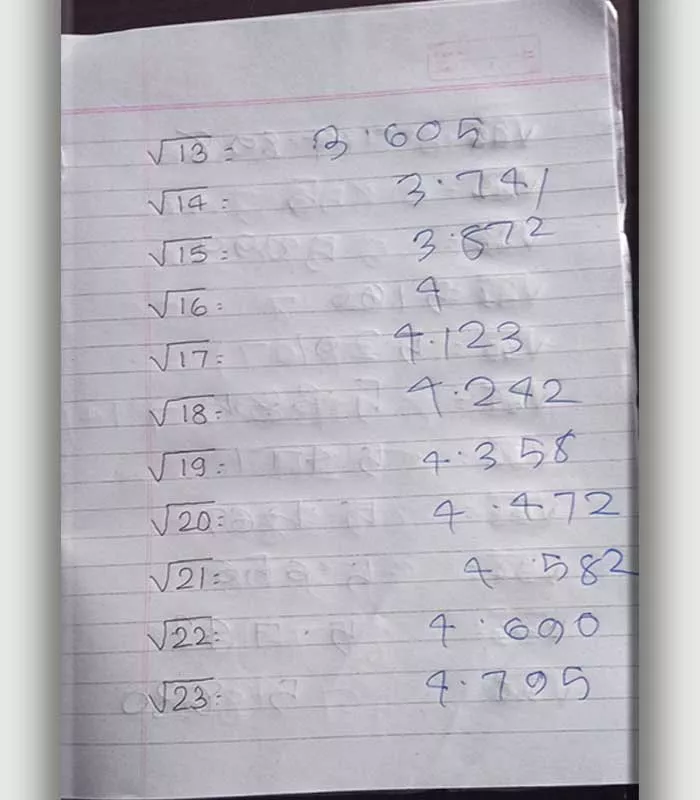 √13 = 3.605
√14 = 3.741
√15 = 3.872
√16 = 4
√17 = 4.123
√18 = 4.242
√19 = 4.358
√20 = 4.472
√21 = 4.582
√22 = 4.690
√23 = 4.795